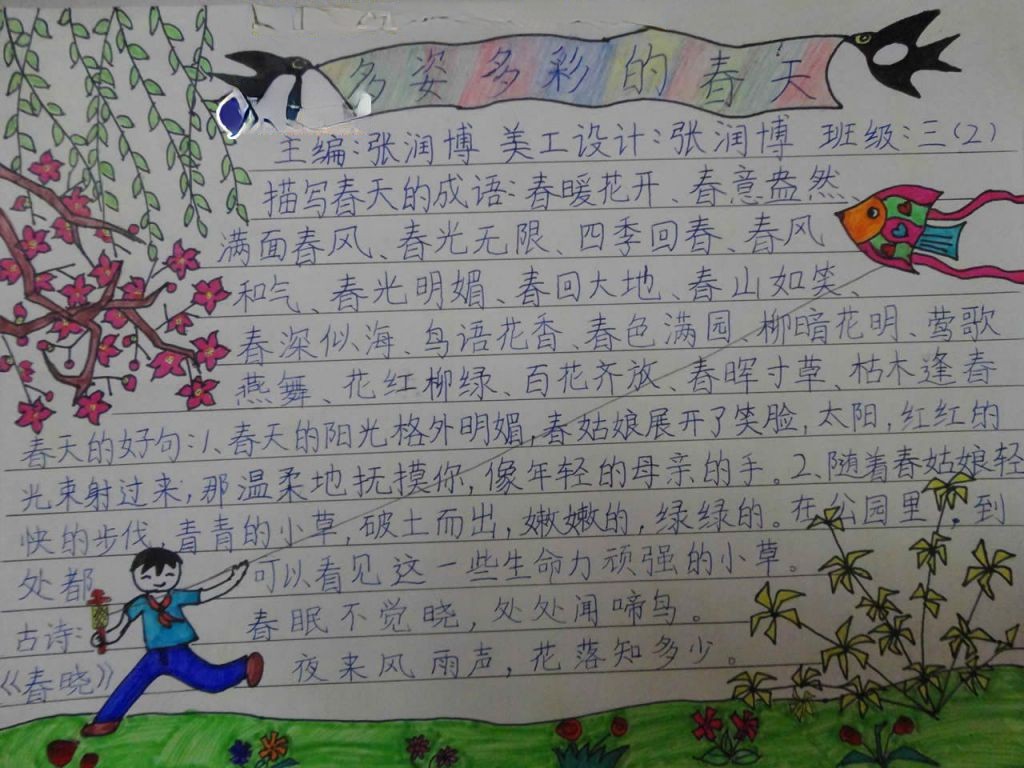 多姿多彩的春天
主编:张润博 美工设计:张润博 班级:三(2)
描写春天的成语:春暖花开、春意盎然
满面春风、春光无限、四季回春、春风
和气、春光明媚、春回大地、春山如笑、
春深似海、鸟语花香、春色满园、柳暗花明、莺歌
燕舞、花红柳绿、百花齐放、春晖寸草、枯木逢春
春天的好句:1、春天的阳光格外明媚,春姑娘展开了笑脸,太阳,红红的
光束射过来,那温柔地抚摸你,像年轻的母亲的手。2、随着春姑娘轻
快的步伐,青青的小草,破土而出,嫩嫩的,绿绿的。在公园里,到
处都可以看见这一些生命力顽强的小草。
古诗: 春眠不觉晓,处处闻啼鸟。
《春晓》 夜来风雨声,花落知多少。